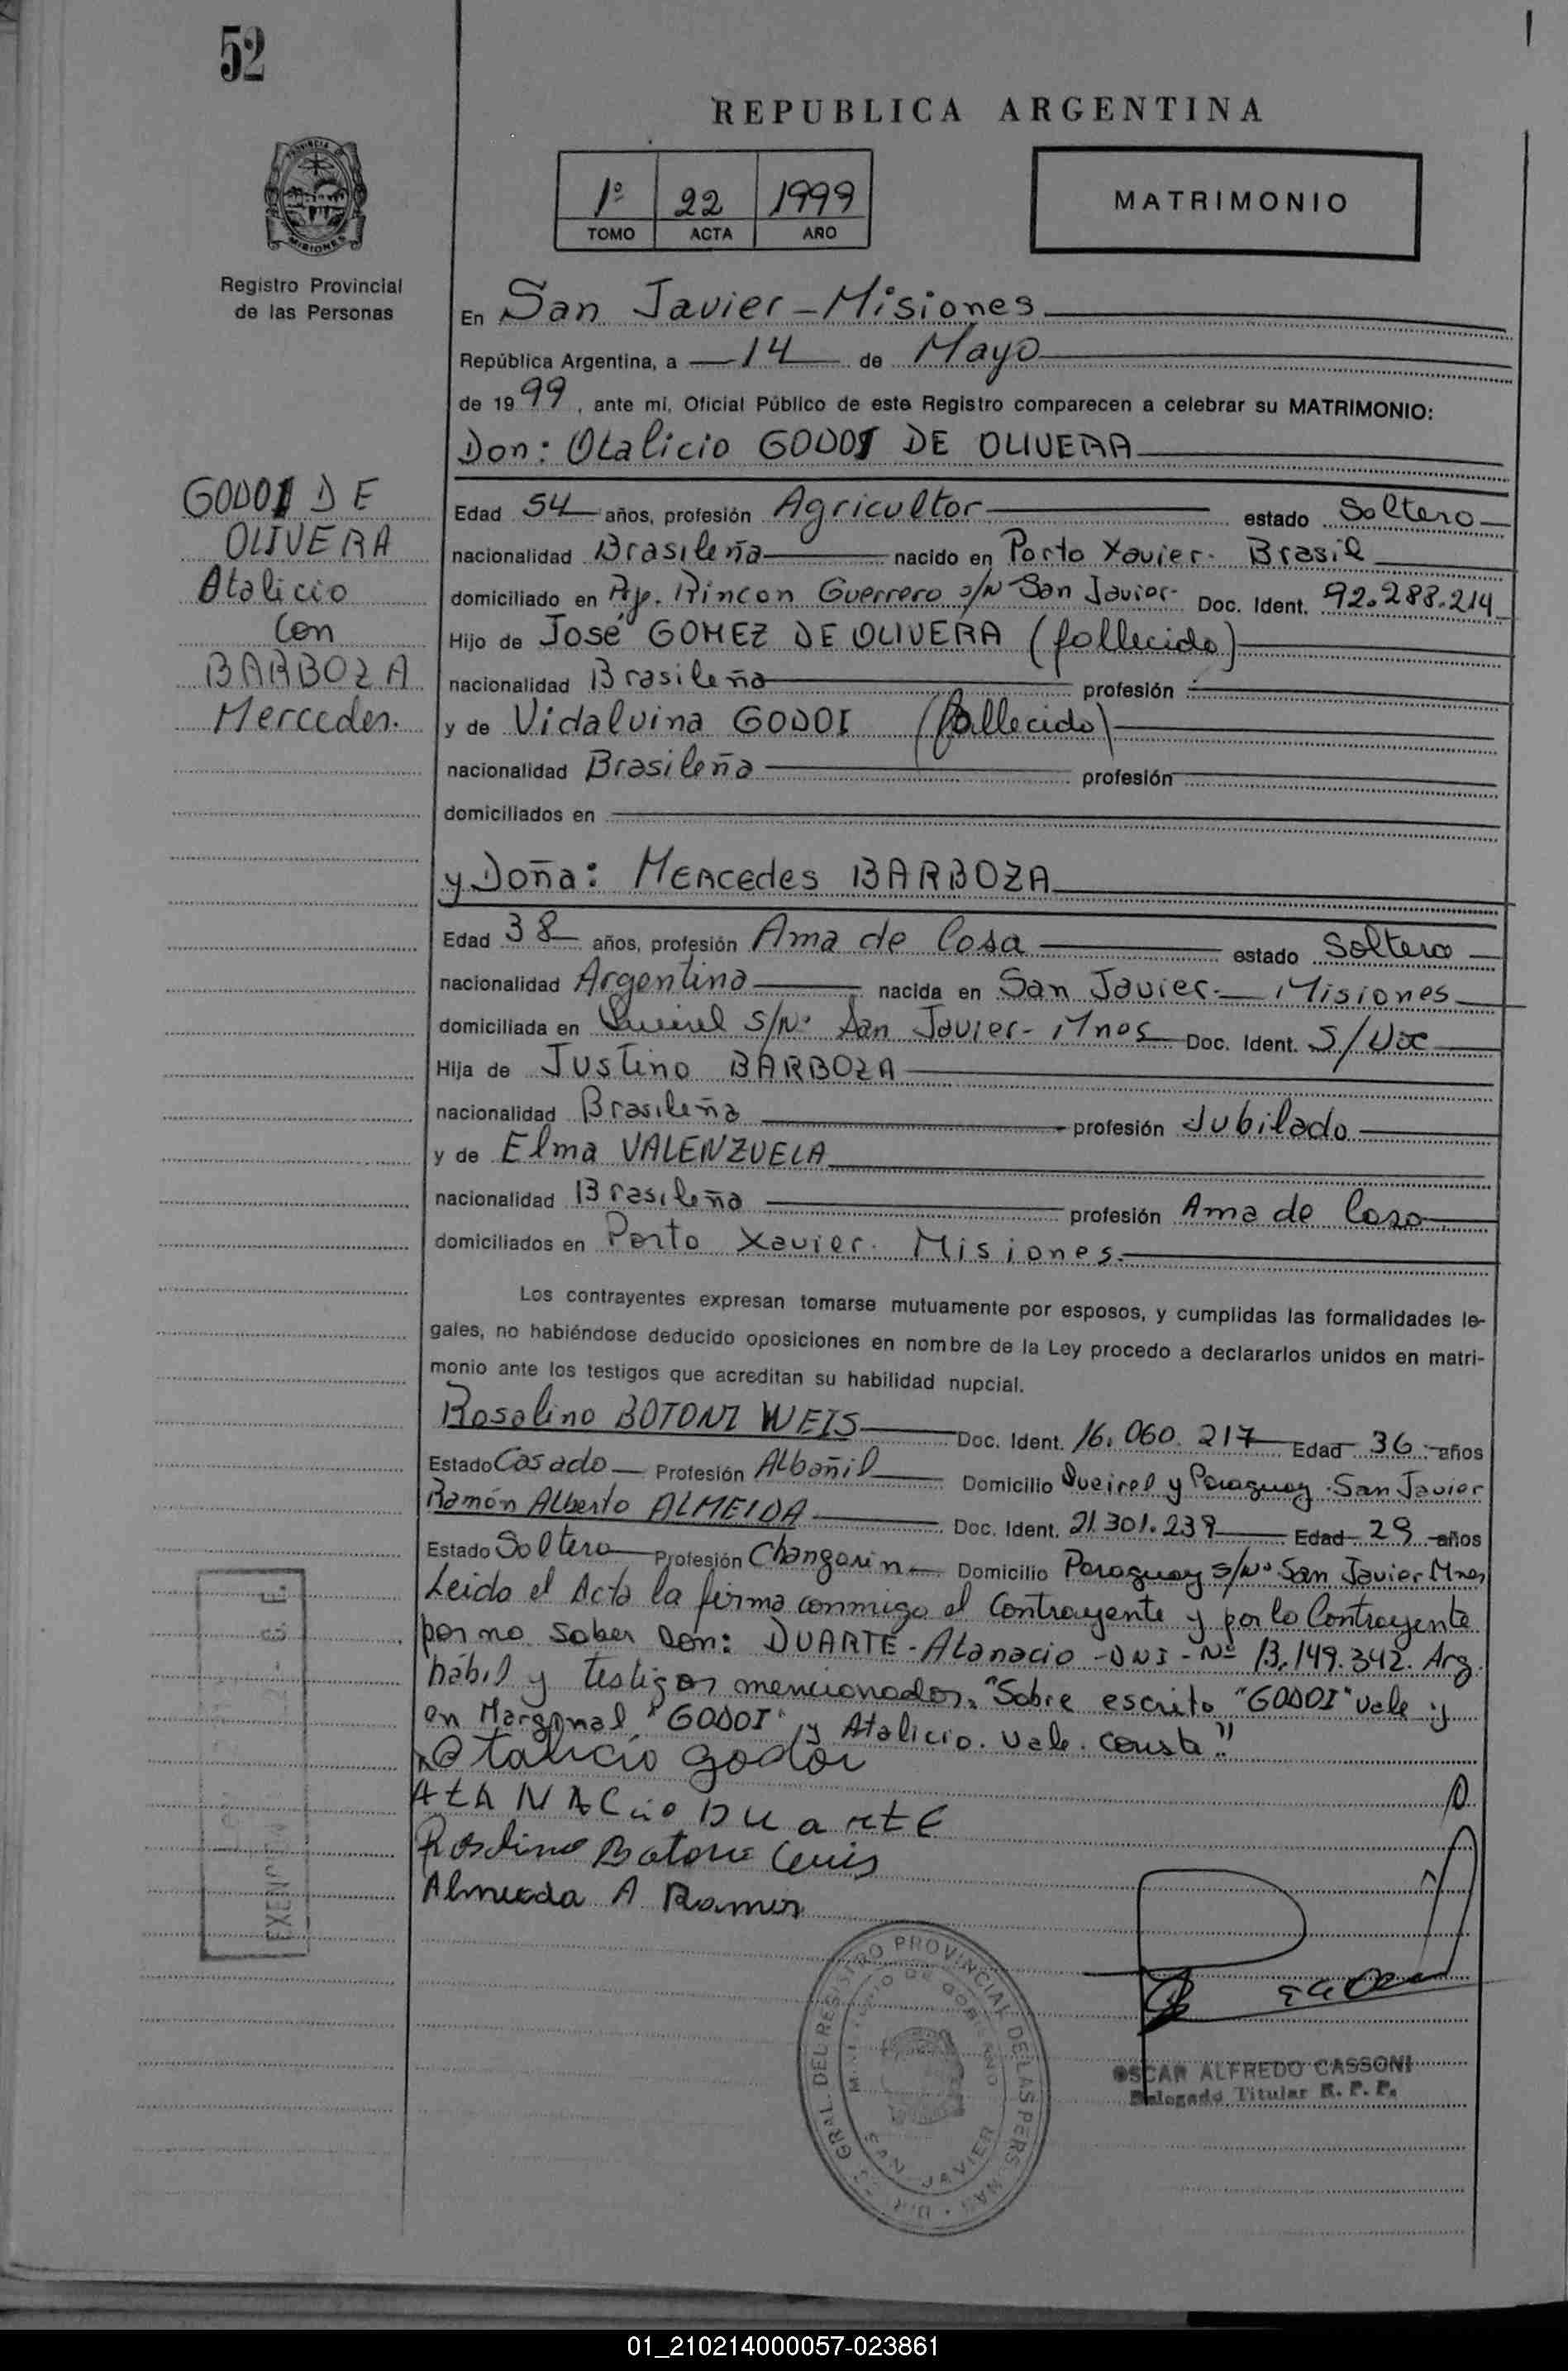 52
REPUBLICA ARGENTINA
1º 22 1999
TOMO ACTA AÑO
MATRIMONIO
PROVINCIA DE MISIONES
Registro Provincial
de las Personas
En San Javier - Misiones
República Argentina, a 14 de Mayo
de 1999, ante mí, Oficial Público de este Registro comparecen a celebrar su MATRIMONIO:
Don: Otalicio GODOI DE OLIVERA
GODOI DE
OLIVERA
Atalicio
Con
BARBOZA
Mercedes.
Edad 54 años, profesión Agricultor estado Soltero
nacionalidad Brasileña nacido en Porto Xavier - Brasil
domiciliado en Pje. Rincon Guerrero s/N San Javier - Doc. Ident. 92.288.214
Hijo de José GOMEZ DE OLIVERA (fallecido)
nacionalidad Brasileña profesión
y de Vidalvina GODOI (fallecido)
nacionalidad Brasileña profesión
domiciliados en
y Doña: Mercedes BARBOZA
Edad 38 años, profesión Ama de Casa estado Soltera
nacionalidad Argentina nacida en San Javier - Misiones
domiciliada en Queirel s/Nº San Javier - Mnes Doc. Ident. S/Doc
Hija de Justino BARBOZA
nacionalidad Brasileña profesión Jubilado
y de Elma VALENZUELA
nacionalidad Brasileña profesión Ama de Casa
domiciliados en Porto Xavier - Misiones
Los contrayentes expresan tomarse mutuamente por esposos, y cumplidas las formalidades le-
gales, no habiéndose deducido oposiciones en nombre de la Ley procedo a declararlos unidos en matri-
monio ante los testigos que acreditan su habilidad nupcial.
Rosalino BOTONI WEIS Doc. Ident. 16.060.217 Edad 36 años
Estado Casado Profesión Albañil Domicilio Queirel y Paraguay - San Javier
Ramón Alberto ALMEIDA Doc. Ident. 21.301.239 Edad 29 años
Estado Soltero Profesión Changarin Domicilio Paraguay s/Nº San Javier Mnes
Leido el Acta la firma conmigo el Contrayente y por la Contrayente
por no saber Don: DUARTE - Atanacio - DNI - Nº 13.149.342. Arg.
hábil y testigos mencionados. "Sobre escrito "GODOI" vale y
en Marginal "GODOI" y Atalicio. Vale. Conste."
Otalicio godoi
AtANACio DuartE
Rosalino Botoni
Almeida A Ramon
EXENC
DIR. GRAL. DEL REGISTRO PROVINCIAL DE LAS PERSONAS
MINISTERIO DE GOBIERNO
SAN JAVIER
OSCAR ALFREDO CASSONI
Delegado Titular R. P. P.
01_210214000057-023861